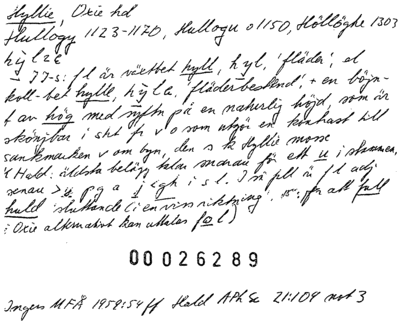 Hyllie, Oxie hd
Hullogy 1123-1170, Hullogu o1150, Höllöghe 1303
hỳlzɛ
JJ-s: f l är växtbet hyll, hyl, 'fläder', el
koll-bet hylle, hyla, 'fläderbestånd', + en böjn-
t av hög med syftn på en naturlig höjd, som är
skönjbar i sht fr v o som utgör en kontrast till
sankmarken v om byn, den s k Hyllie mosse
Hald: äldsta belägg talar snarast för ett u i stammen,
senare > y p g a j < gh i s l. I så fall är f l adj
huld 'sluttande (i en viss riktning)'. för att full
i Oxie alternativt kan uttalas føl)
00026289
Ingers MFÅ 1958:54 ff Hald APhSc 21:109 not 3